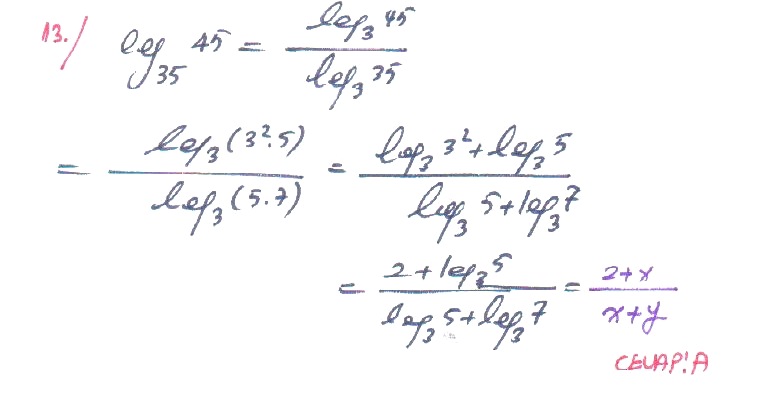 13./ log₃₅ 45 = log₃ 45 / log₃ 35
= log₃(3².5) / log₃(5.7) = log₃ 3² + log₃ 5 / log₃ 5 + log₃ 7
= 2 + log₃ 5 / log₃ 5 + log₃ 7 = 2+x / x+y
CEVAP: A